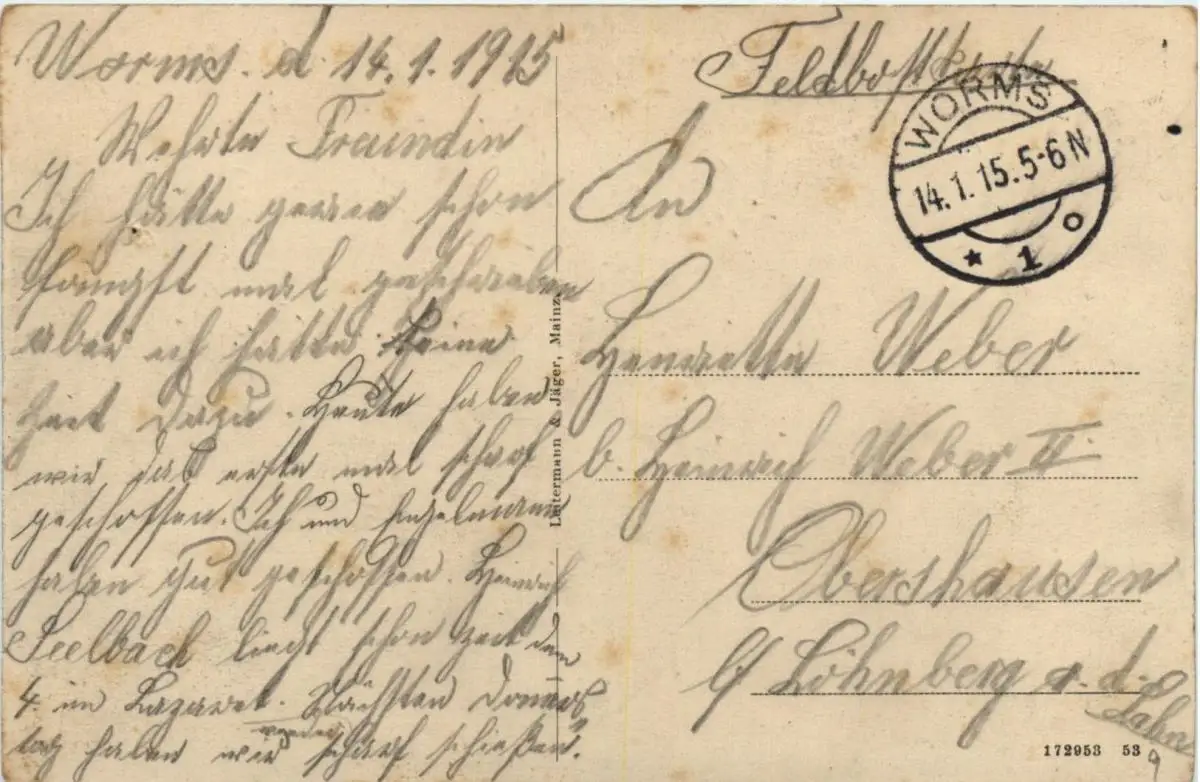 Worms. d. 14.1.1915
Wehrte Freundin
Ich hätte gerne schon
längst mal geschrieben
aber ich hatte keine
Zeit dazu. Heute haben
wir das erste mal scharf
geschossen. Ich und Engelmann
haben gut geschossen. Heinrich
Seelbach liegt schon zeit dem
4. im Lazaret. Nächsten Doners
tag haben wir wieder scharf schießen.
Feldpostkarte
WORMS
14.1.15.5-6N
* 1 o
An
Henrette Weber
b. Heinrich Weber II.
Obershausen
b/ Löhnberg a. d.
Lahn
Lautermann & Jäger, Mainz.
172953 53